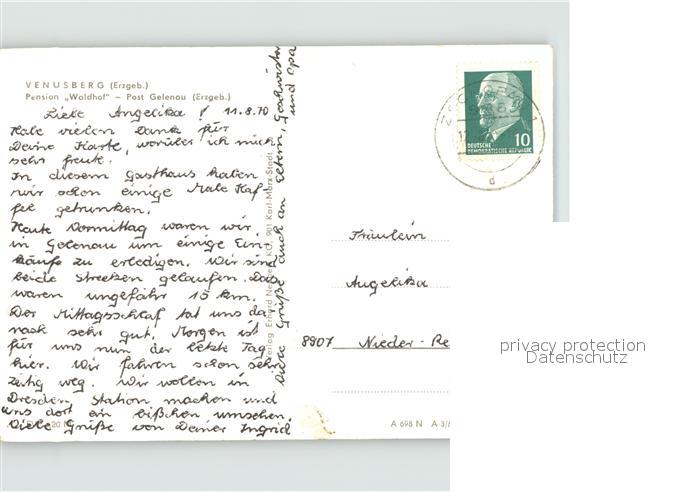 VENUSBERG (Erzgeb.)
Pension „Waldhof" – Post Gelenau (Erzgeb.)
Liebe Angelika! 11.8.70
Habe vielen Dank für
Deine Karte, worüber ich mich
sehr freute.
In diesem Gasthaus haben
wir schon einige Male Kaf-
fee getrunken.
Heute Vormittag waren wir
in Gelenau um einige Ein-
käufe zu erledigen. Wir sind
beide Strecken gelaufen. Das
waren ungefähr 15 km.
Der Mittagsschlaf tat uns da-
nach sehr gut. Morgen ist
für uns nun der letzte Tag
hier. Wir fahren schon sehr
zeitig weg. Wir wollen in
Dresden Station machen und
uns dort ein bißchen umsehen.
Viele Grüße von Deiner Ingrid
Viele Grüße auch an Eltern, Geschwister
und Opa
Verlag Erhard KG, 901 Karl-Marx-Stadt
DEUTSCHE
DEMOKRATISCHE REPUBLIK
10
Fräulein
Angelika
8907 Nieder-Re
A 698 N A 3/6
privacy protection
Datenschutz